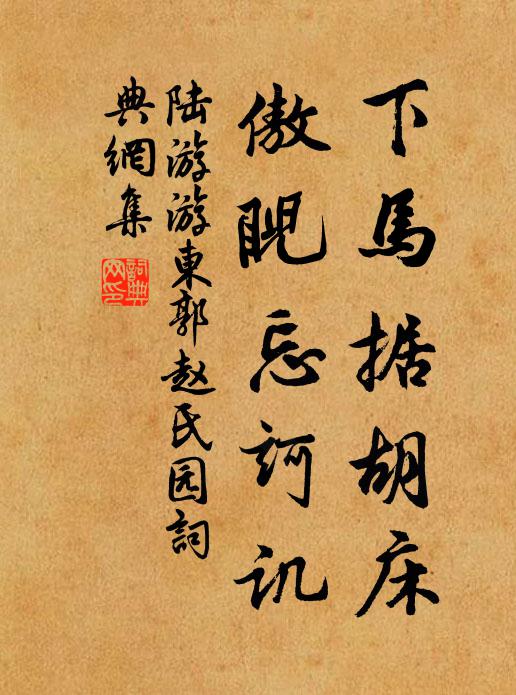 下馬据胡床
傲睨忘訶讥
陆游游東郭赵氏园詞
典網集
詞典網印